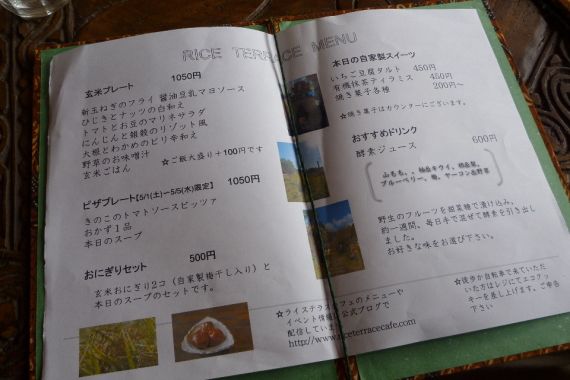 RICE TERRACE MENU
玄米プレート 1050円
新玉ねぎのフライ 醤油豆乳マヨソース
ひじきとナッツの白和え
トマトとお豆のマリネサラダ
にんじんと雑穀のリゾット風
大根とわかめのピリ辛和え
野草のお味噌汁
玄米ごはん ☆ご飯大盛り+100円です
ピザプレート【5/1(土)~5/5(水)限定】 1050円
きのこのトマトソースピッツァ
おかず1品
本日のスープ
おにぎりセット 500円
玄米おにぎり2コ(自家製梅干し入り)と
本日のスープのセットです。
本日の自家製スイーツ
いちご豆腐タルト 450円
有機抹茶ティラミス 450円
焼き菓子各種 200円~
☆焼き菓子はカウンターにございます。
おすすめドリンク
酵素ジュース 600円
ブルーベリー、梅、ヤーコン長野草
野生のフルーツを甜菜糖で漬け込み、
約一週間、毎日手で混ぜて酵素を引き出し
ました。
お好きな味をお選び下さい。
☆ライステラスカフェのメニューや
イベント情報は公式ブログで
配信しています
http://www.riceterracecafe.com
☆徒歩か自転車で来ていただ
いた方はレジにてエコクッ
キーを差し上げます。ご申告
下さい